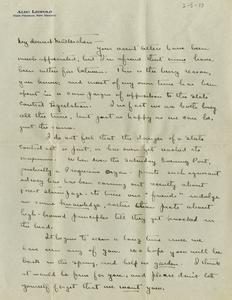 ALDO LEOPOLD
My dearest Mother dear:
Your good letters have been
much appreciated, but I'm afraid that mine have
been rather far between. This is the busy season,
you know, and most of my own time has been
spent in a campaign of opposition to the State
Control legislation. In fact we are both busy
all the time, but just as happy as we can be,
just the same.
I do not feel that the danger of a State
Control act is past, or has even yet reached its
maximum. When even the Saturday Evening Post,
practically a Progressive organ, prints such ignorant
as has been coming out recently about
great should indulge
in some knowledge, rather than prate about
high-browed principles till they get knocked in
the head.
It begins to seem a long time since we
have seen any of you. We hope you will be
back in the spring, and help us garden. I think
it would be fun for you, and please don't let
yourself forget that we want you.